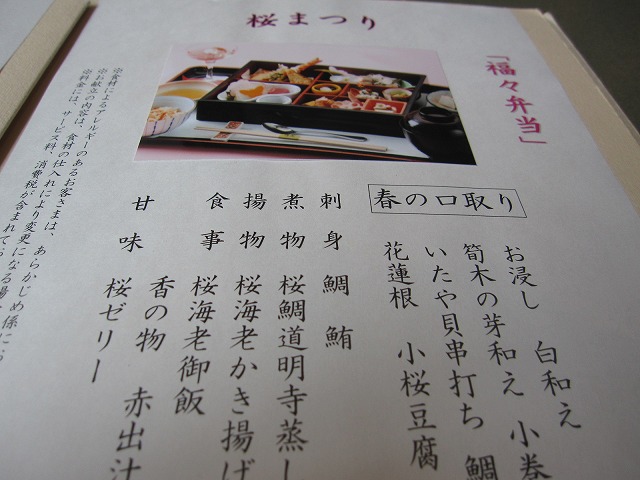 桜まつり
「福々弁当」
春の口取り
お浸し 白和え
筍木の芽和え 小巻
いたや貝串打ち 鯛
花蓮根 小桜豆腐
刺身 鯛 鮪
煮物 桜鯛道明寺蒸し
揚物 桜海老かき揚げ
食事 桜海老御飯
香の物 赤出汁
甘味 桜ゼリー
※食材によるアレルギーのあるお客さまは、あらかじめ係にお
※お献立の内容は、食材の仕入れにより変更になる場
※料金には、サービス料、消費税が含まれてお